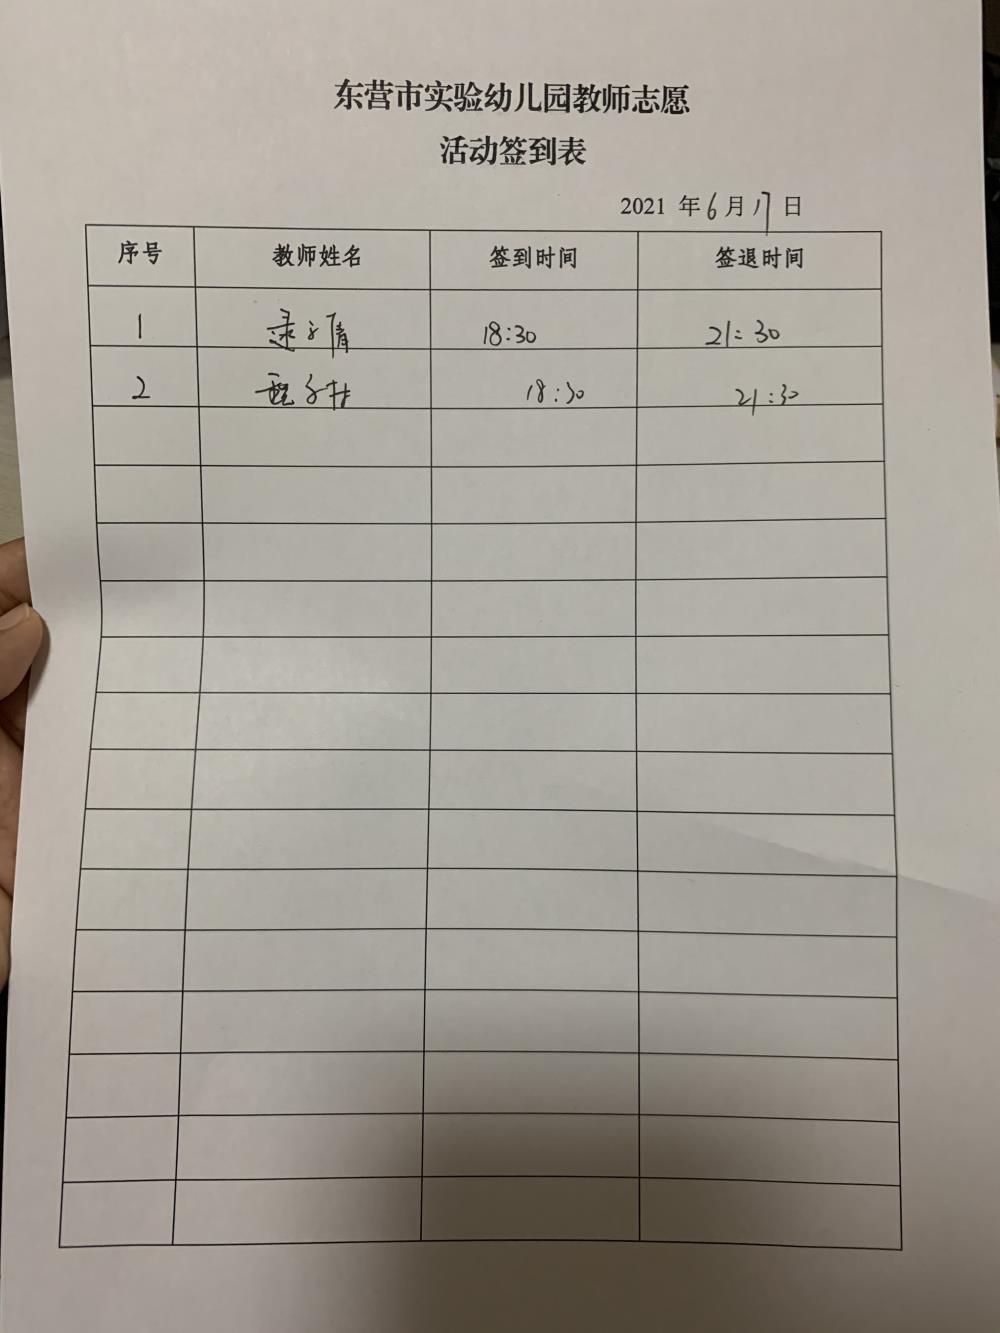 东营市实验幼儿园教师志愿
活动签到表
2021 年6月17日
序号 教师姓名 签到时间 签退时间
1 18:30 21:30
2 18:30 21:30